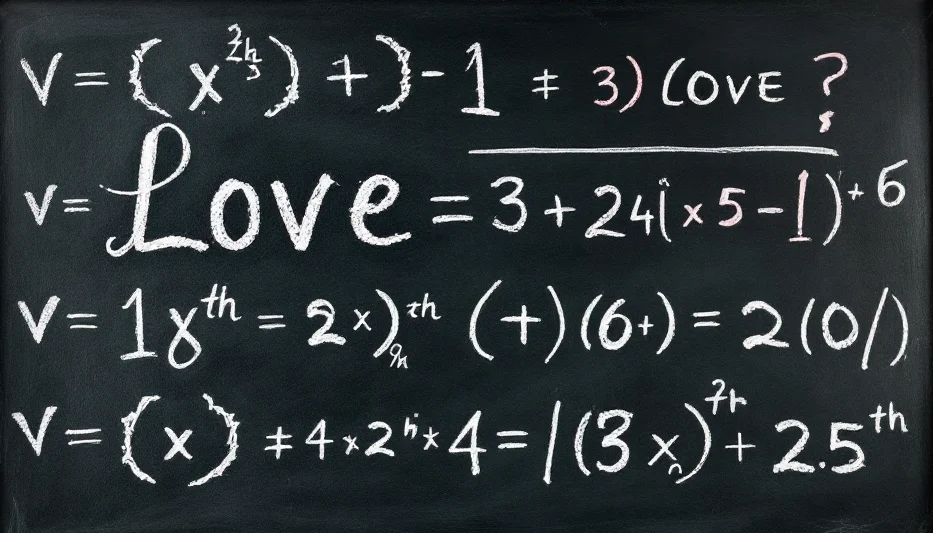 V = (x^2h) + ) - 1 ≠ 3) LOVE ?
v = Love = 3 + 24( x 5 - 1 )^+ 6
V = 18^th = 2 x )^th (+) (6+) = 2(0/)
V = (x) ≠ 4 x 2 * 4 = / (3 x)^2h + 2.5^th